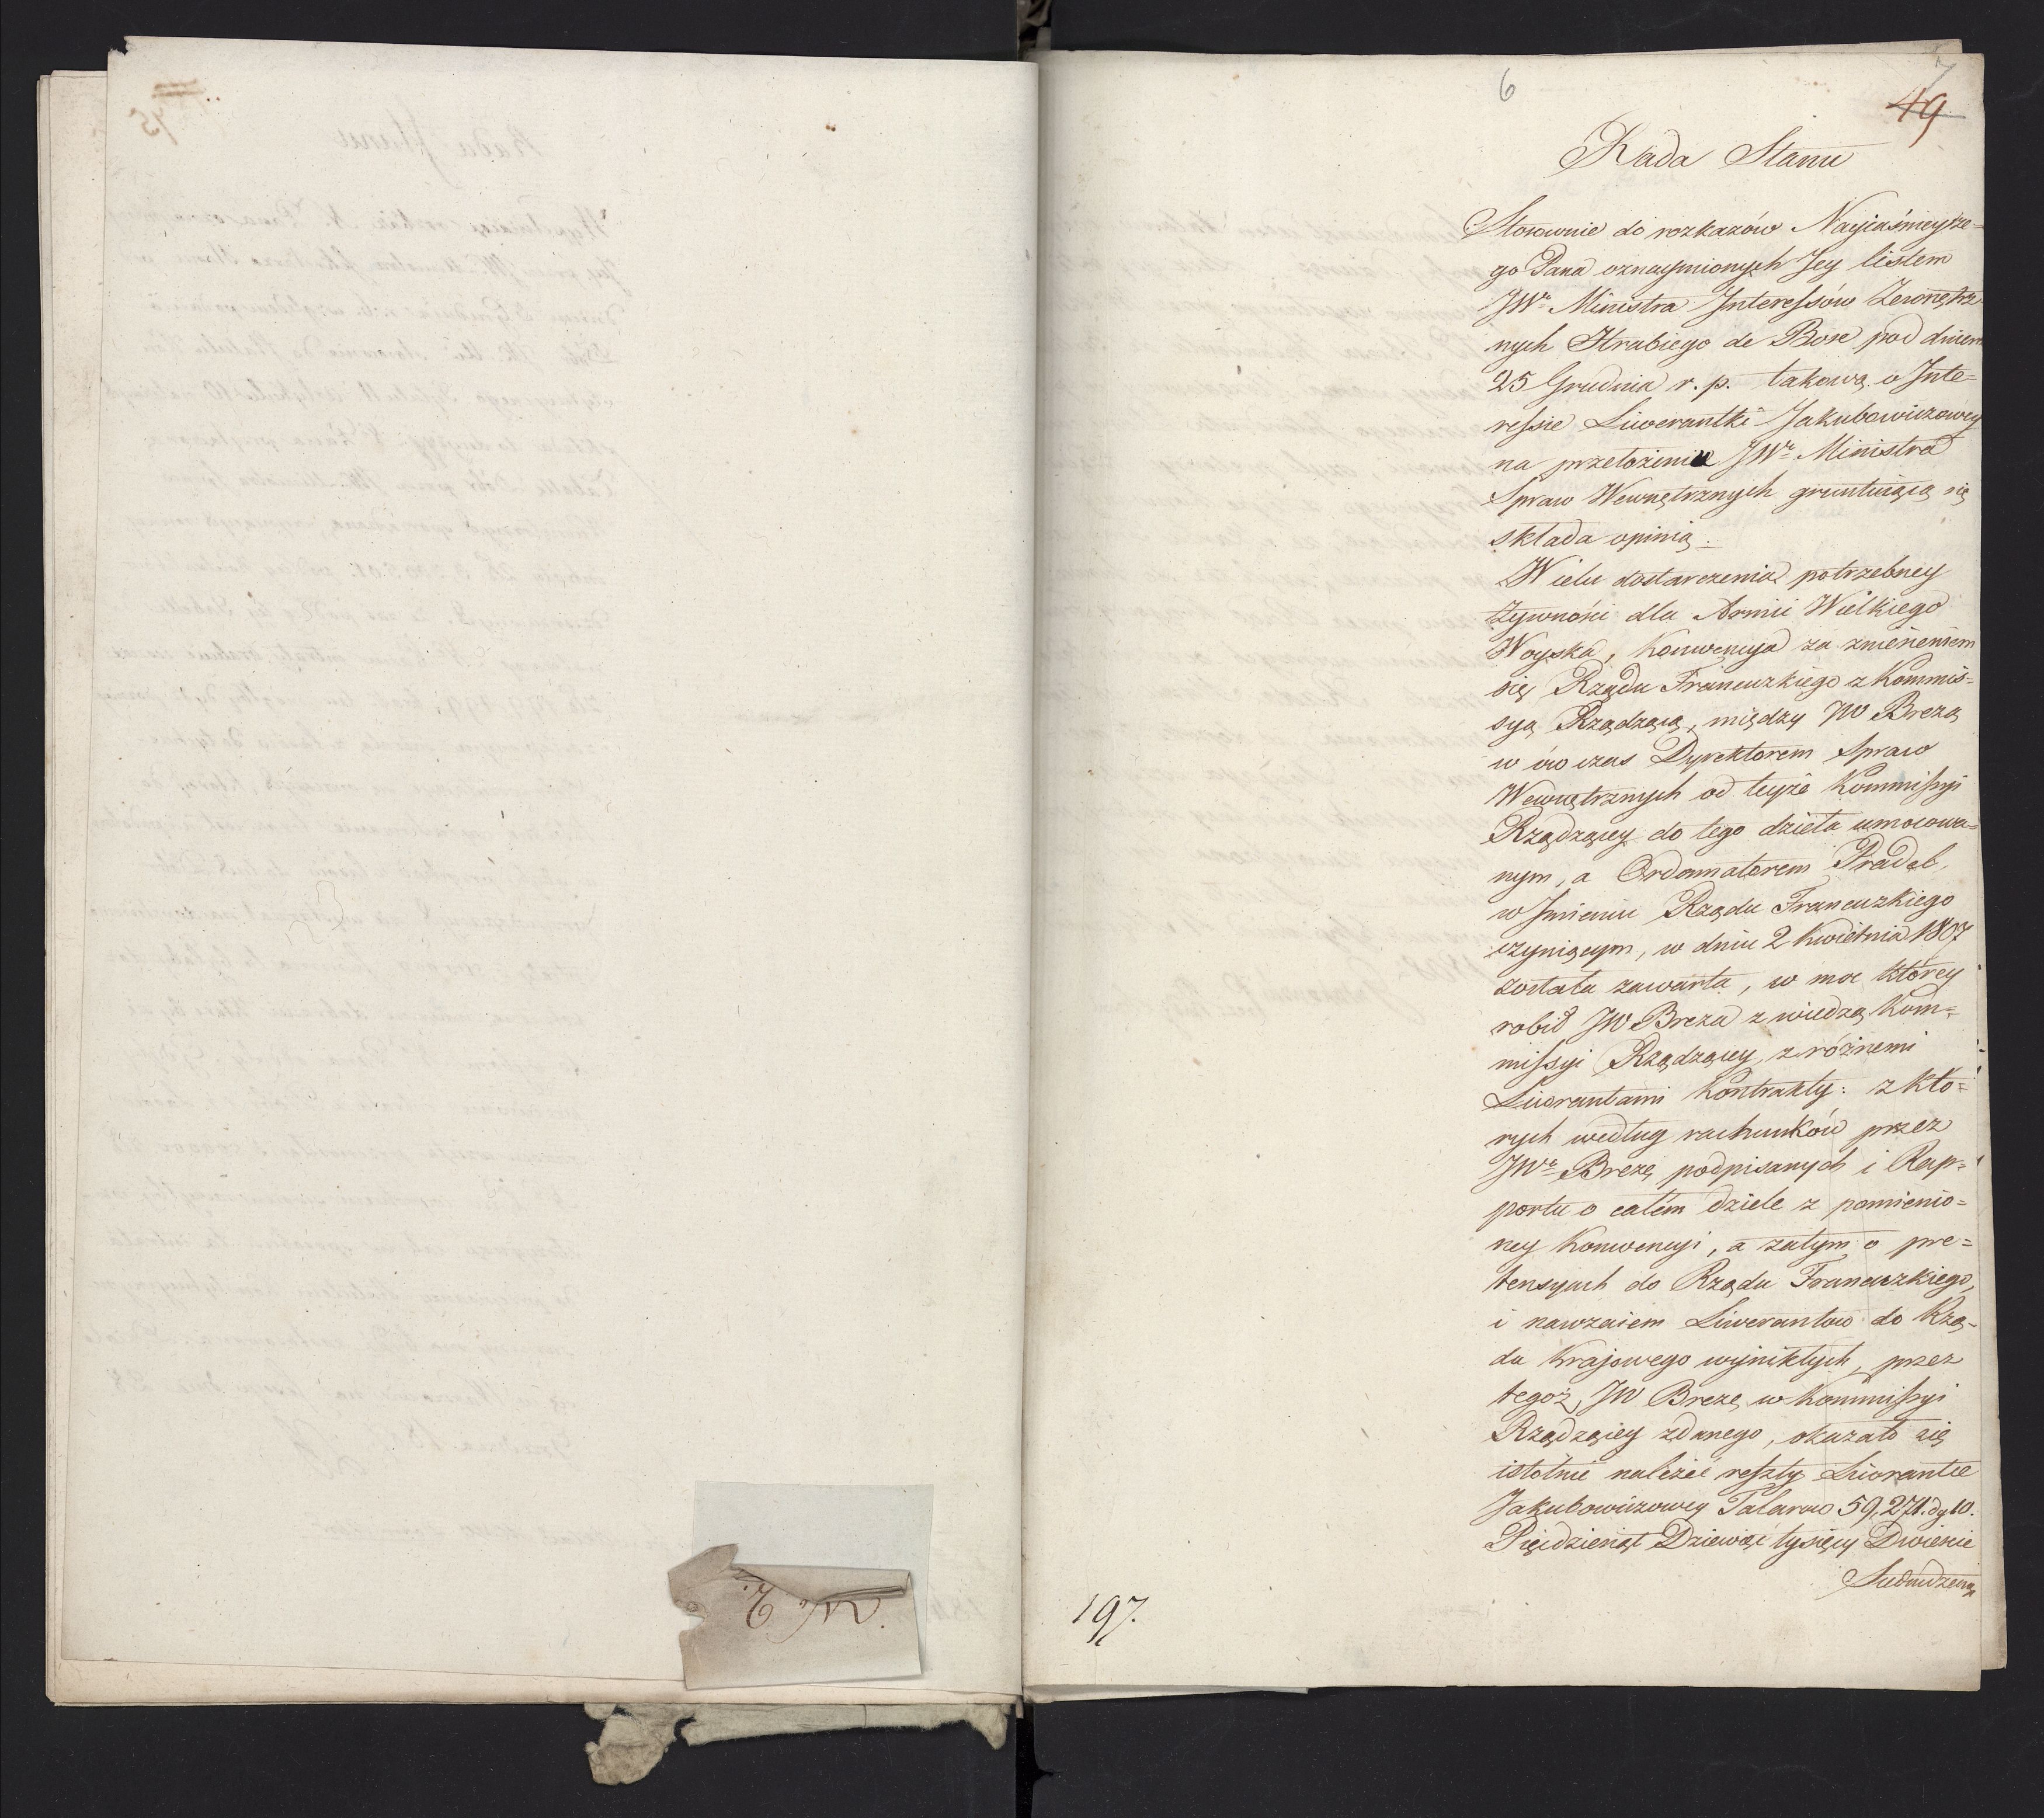 6
7
49
Rada Stanu
Stosownie do rozkazów Nayiaśnieysze=
go Pana oznaymionych Jey listem
JWo Ministra Interessów Zewnętrz=
nych Hrabiego de Bose pod dniem
25 Grudnia r. p. takową o Inte=
ressie Liwerantki Jakubowiczowey
na przełożenie JWo Ministra
Spraw Wewnętrznych gruntuiącą się
składa opinią.
W celu dostarczenia potrzebney
żywności dla Armii Wielkiego
Woyska, Konwencya za zniesieniem
się Rządu Francuzkiego z Kommis=
syą Rządzącą, między JW Brezą
w ów czas Dyrektorem Spraw
Wewnętrznych od teyże Kommissyi
Rządzącey do tego dzieła umocowa=
nym, a Ordonnatorem Pradel,
w Imieniu Rządu Francuzkiego
czyniącym, w dniu 2 Kwietnia 1807
została zawarta, w moc którey
robił JW Breza z wiedzą Kom=
missyi Rządzącey, z różnemi
Liwerantami Kontrakty: z któ=
rych według rachunków przez
JWo Brezę podpisanych i Rap=
portu o całem dziele z pomienio=
ney Konwencyi, a zatym o pre=
tensyach do Rządu Francuzkiego,
i nawzaiem Liwerantow do Rzą=
du Krajowego wynikłych, przez
tegoż JW Brezę w Kommissyi
Rządzącey zdanego, okazało się
istotnie należeć reszty Liwerantce
Jakubowiczowey Talarow 59,271. dgl 10.
Pięćdziesiąt Dziewięć tysięcy Dwieście
Siedmdziesiąt
197.
N. 2.